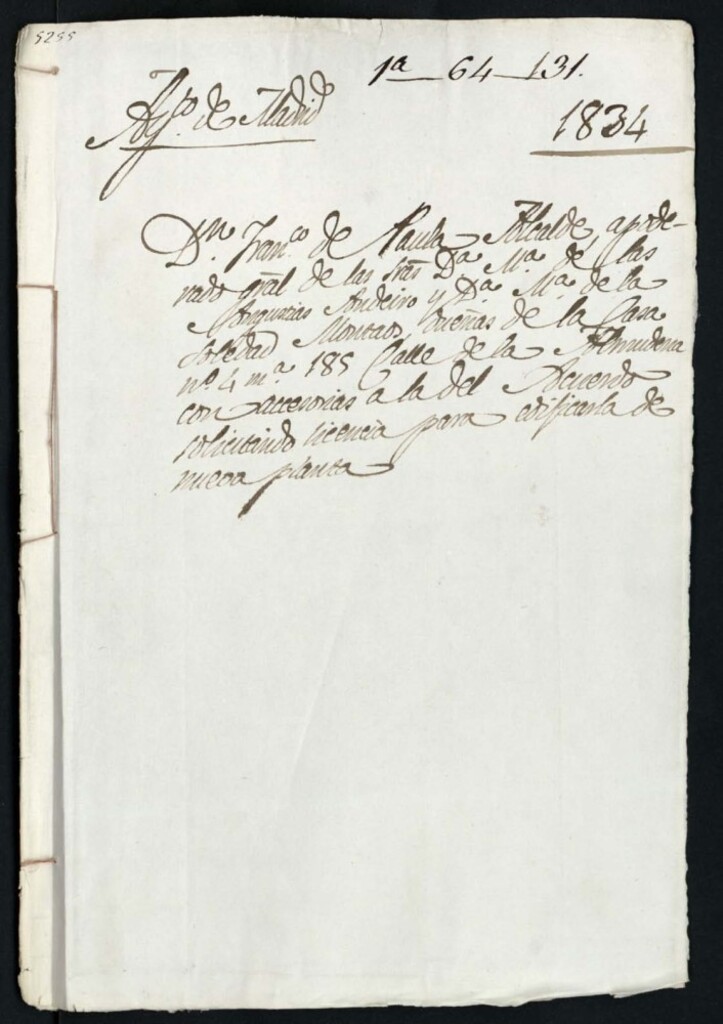 5255
1ª 64-131.
Ayto. de Madrid
1834
Dn. Franco. de Paula Alcalde, apode-
rado gral de las Sras Da. Ma. de las
Angustias Andeiro y Da. Ma. de la
Soledad Montaos, dueñas de la Casa
no. 4 ma. 185 Calle de la Almudena
con accesorias a la del Acuerdo
solicitando licencia para edificarla de
nueva planta